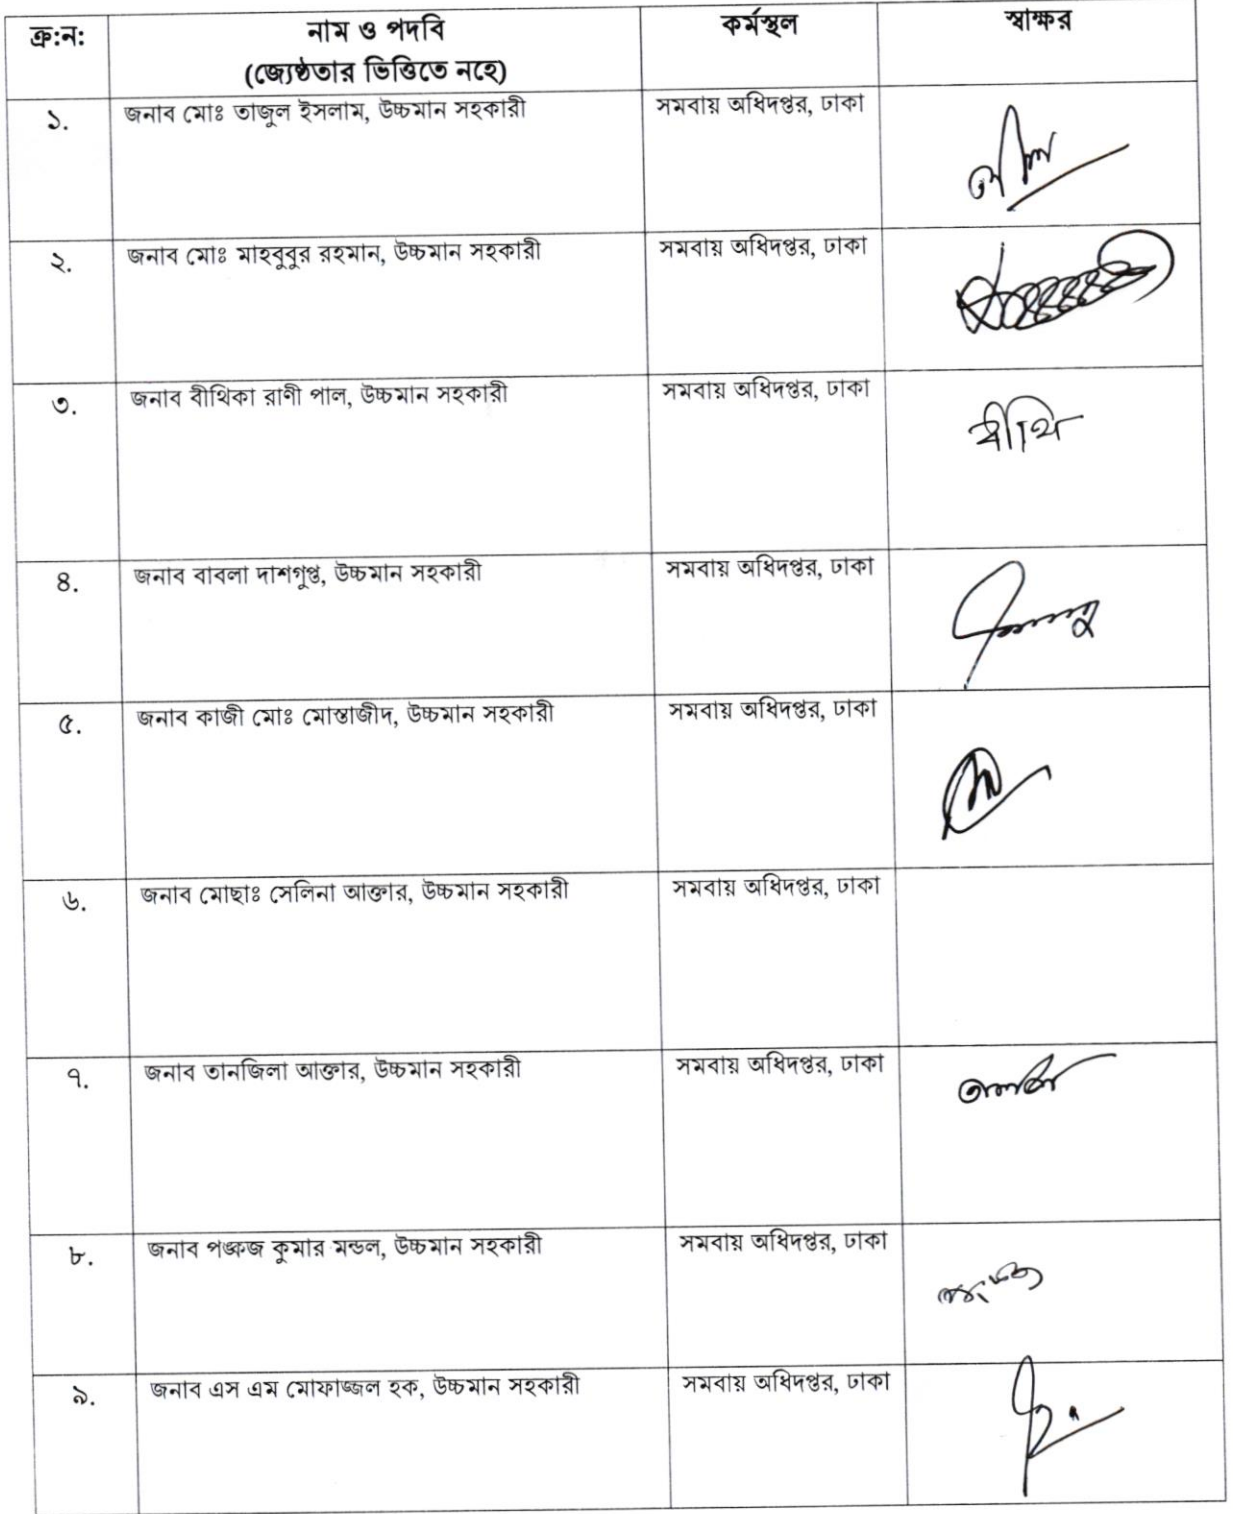 ক্র:ন: নাম ও পদবি কর্মস্থল স্বাক্ষর
(জ্যেষ্ঠতার ভিত্তিতে নহে)
১. জনাব মোঃ তাজুল ইসলাম, উচ্চমান সহকারী সমবায় অধিদপ্তর, ঢাকা
২. জনাব মোঃ মাহবুবুর রহমান, উচ্চমান সহকারী সমবায় অধিদপ্তর, ঢাকা
৩. জনাব বীথিকা রাণী পাল, উচ্চমান সহকারী সমবায় অধিদপ্তর, ঢাকা বীথি
৪. জনাব বাবলা দাশগুপ্ত, উচ্চমান সহকারী সমবায় অধিদপ্তর, ঢাকা
৫. জনাব কাজী মোঃ মোস্তাজীদ, উচ্চমান সহকারী সমবায় অধিদপ্তর, ঢাকা
৬. জনাব মোছাঃ সেলিনা আক্তার, উচ্চমান সহকারী সমবায় অধিদপ্তর, ঢাকা
৭. জনাব তানজিলা আক্তার, উচ্চমান সহকারী সমবায় অধিদপ্তর, ঢাকা
৮. জনাব পঙ্কজ কুমার মন্ডল, উচ্চমান সহকারী সমবায় অধিদপ্তর, ঢাকা
৯. জনাব এস এম মোফাজ্জল হক, উচ্চমান সহকারী সমবায় অধিদপ্তর, ঢাকা